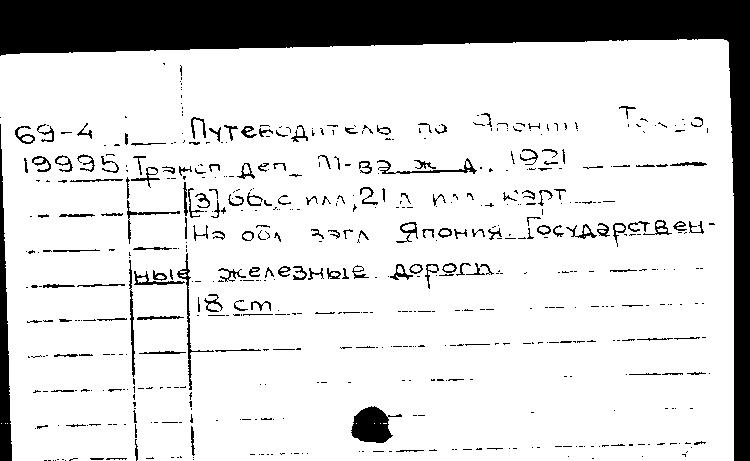 69-4 Путеводитель по Японии Токио,
19995 Трансп. деп. М-ва ж. д., 1921
[3], 66 с. илл., 21 л. илл., карт
На обл. загл. Япония. Государствен-
ные железные дороги.
18 см